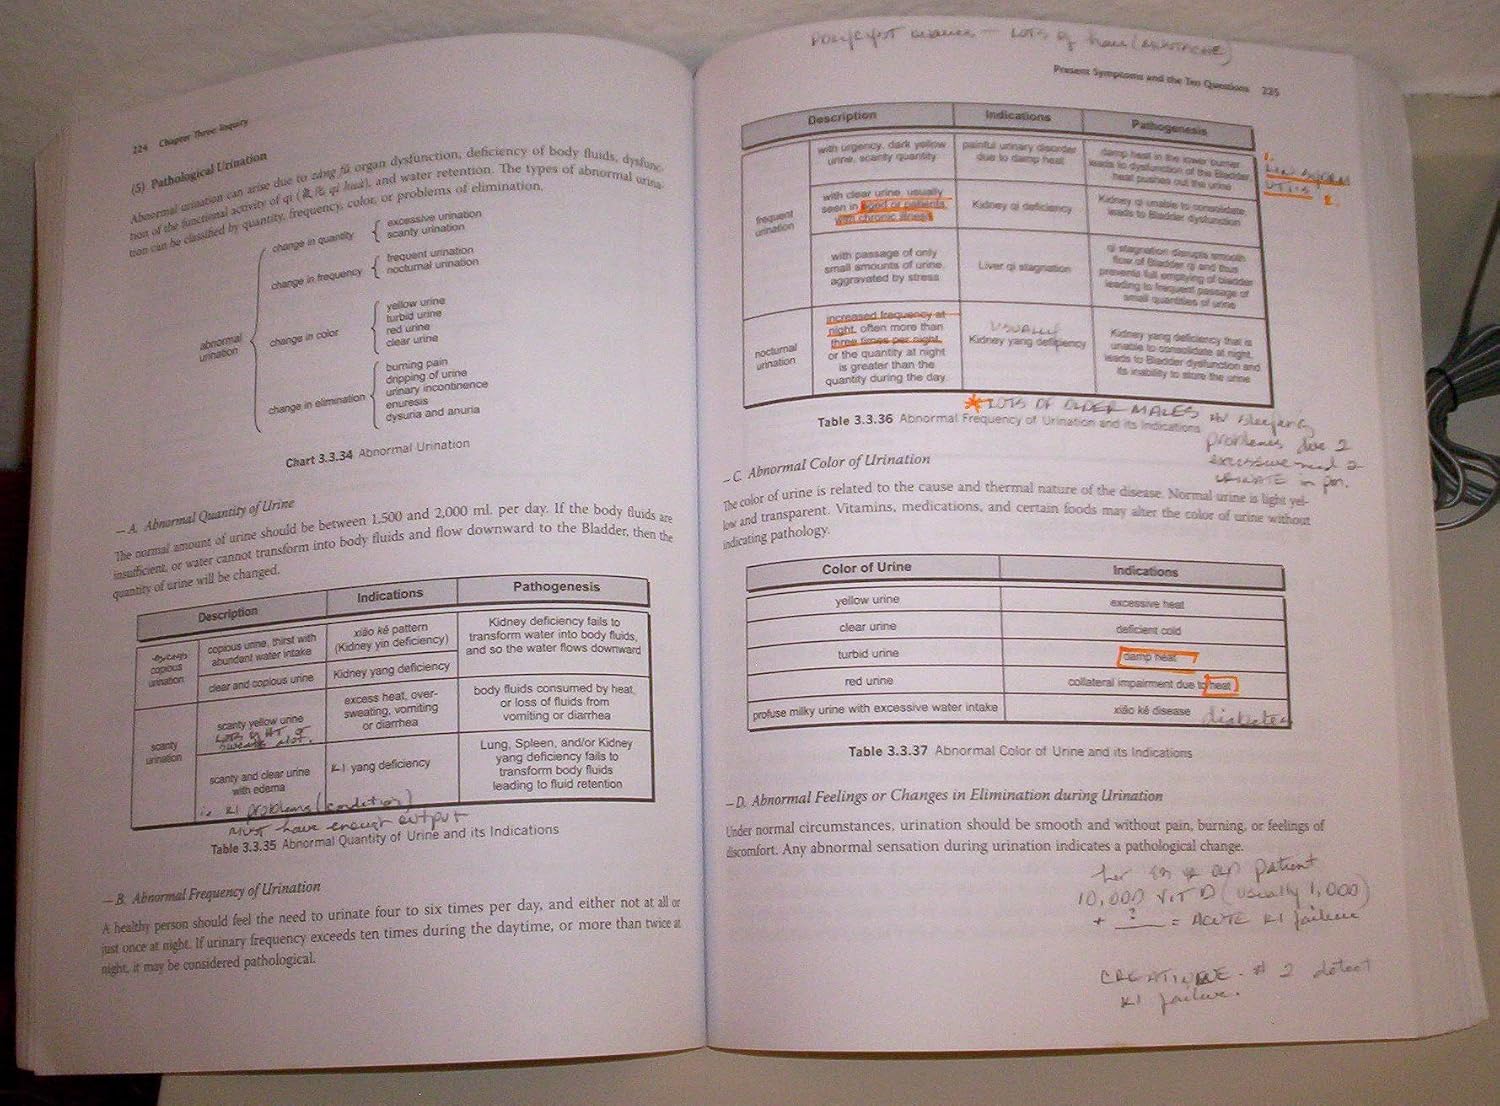 224 Chapter Three: Inquiry
(5) Pathological Urination
Abnormal urination can arise due to zàng fǔ organ dysfunction, deficiency of body fluids, dysfunc-
tion of the functional activity of qi (氣化 qì huà), and water retention. The types of abnormal urina-
tion can be classified by quantity, frequency, color, or problems of elimination.
abnormal
urination
change in quantity
excessive urination
scanty urination
change in frequency
frequent urination
nocturnal urination
change in color
yellow urine
turbid urine
red urine
clear urine
change in elimination
burning pain
dripping of urine
urinary incontinence
enuresis
dysuria and anuria
Chart 3.3.34 Abnormal Urination
—A. Abnormal Quantity of Urine
The normal amount of urine should be between 1,500 and 2,000 ml. per day. If the body fluids are
insufficient, or water cannot transform into body fluids and flow downward to the Bladder, then the
quantity of urine will be changed.
Description Indications Pathogenesis
copious
urination
copious urine, thirst with
abundant water intake
xiāo kě pattern
(Kidney yin deficiency)
Kidney deficiency fails to
transform water into body fluids,
and so the water flows downward
clear and copious urine
Kidney yang deficiency
scanty
urination
scanty yellow urine
LOTS of HT
sweats alot.
excess heat, over-
sweating, vomiting
or diarrhea
body fluids consumed by heat,
or loss of fluids from
vomiting or diarrhea
scanty and clear urine
with edema
KI yang deficiency
Lung, Spleen, and/or Kidney
yang deficiency fails to
transform body fluids
leading to fluid retention
KI problems (condition)
must have enough output
Table 3.3.35 Abnormal Quantity of Urine and its Indications
—B. Abnormal Frequency of Urination
A healthy person should feel the need to urinate four to six times per day, and either not at all or
just once at night. If urinary frequency exceeds ten times during the daytime, or more than twice at
night, it may be considered pathological.
LOTS of hair (MUSTACHE)
Present Symptoms and the Ten Questions 225
Description Indications Pathogenesis
frequent
urination
with urgency, dark yellow
urine, scanty quantity
painful urinary disorder
due to damp heat
damp heat in the lower burner
leads to dysfunction of the Bladder
heat pushes out the urine
1.
2.
with clear urine, usually
seen in aged or patients
with chronic illness
Kidney qi deficiency
Kidney qi unable to consolidate
leads to Bladder dysfunction
with passage of only
small amounts of urine,
aggravated by stress
Liver qi stagnation
qi stagnation disrupts smooth
flow of Bladder qi and thus
prevents full emptying of bladder
leading to frequent passage of
small quantities of urine
nocturnal
urination
increased frequency at
night, often more than
three times per night,
or the quantity at night
is greater than the
quantity during the day
USUALLY
Kidney yang deficiency
Kidney yang deficiency that is
unable to consolidate at night,
leads to Bladder dysfunction and
its inability to store the urine
* LOTS OF OLDER MALES sleeping
problems due 2
excessive need 2
URINATE in pm.
Table 3.3.36 Abnormal Frequency of Urination and its Indications
—C. Abnormal Color of Urination
The color of urine is related to the cause and thermal nature of the disease. Normal urine is light yel-
low and transparent. Vitamins, medications, and certain foods may alter the color of urine without
indicating pathology.
Color of Urine Indications
yellow urine excessive heat
clear urine deficient cold
turbid urine damp heat
red urine collateral impairment due to heat
profuse milky urine with excessive water intake xiāo kě disease diabetes
Table 3.3.37 Abnormal Color of Urine and its Indications
—D. Abnormal Feelings or Changes in Elimination during Urination
Under normal circumstances, urination should be smooth and without pain, burning, or feelings of
discomfort. Any abnormal sensation during urination indicates a pathological change.
her patient
10,000 VIT D (usually 1,000)
+ ? = ACUTE KI failure
2 detect
KI failure.